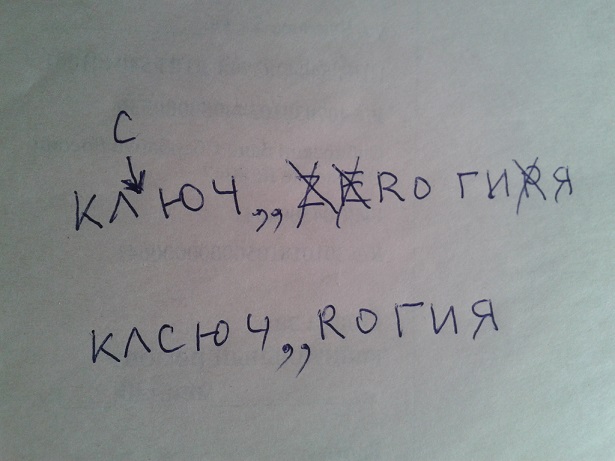 С
КЛЮЧ,, ZERO ГИRЯ
КЛСЮЧ,,RОГИЯ